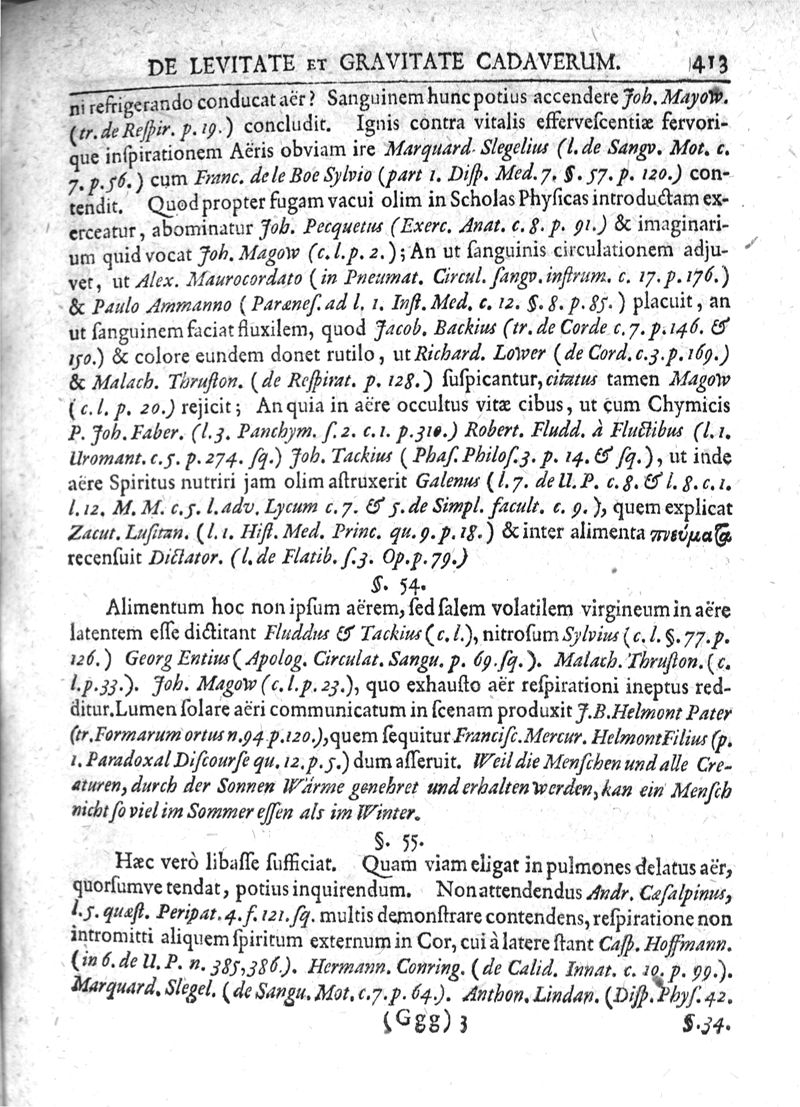 DE LEVITATE ET GRAVITATE CADAVERUM. 413
ni refrigerando conducat aër? Sanguinem hunc potius accendere Joh. Mayow.
(tr. de Reſpir. p. 19.) concludit. Ignis contra vitalis efferveſcentiæ fervori-
que inſpirationem Aëris obviam ire Marquard Slegelius (l. de Sangv. Mot. c.
7. p. 56.) cum Franc. de le Boe Sylvio (part 1. Diſp. Med. 7. §. 57. p. 120.) con-
tendit. Quod propter fugam vacui olim in Scholas Phyſicas introductam ex-
erceatur, abominatur Joh. Pecquetus (Exerc. Anat. c. 8. p. 91.) & imaginari-
um quid vocat Joh. Magow (c. l. p. 2.); An ut ſanguinis circulationem adju-
vet, ut Alex. Maurocordato (in Pneumat. Circul. ſangv. inſtrum. c. 17. p. 176.)
& Paulo Ammanno (Paræneſ. ad l. 1. Inſt. Med. c. 12. §. 8. p. 85.) placuit, an
ut ſanguinem faciat fluxilem, quod Jacob. Backius (tr. de Corde c. 7. p. 146. &
150.) & colore eundem donet rutilo, ut Richard. Lower (de Cord. c. 3. p. 169.)
& Malach. Thruſton. (de Reſpirat. p. 128.) ſuſpicantur, citatus tamen Magow
(c. l. p. 20.) rejicit; An quia in aëre occultus vitæ cibus, ut cum Chymicis
P. Joh. Faber. (l. 3. Panchym. ſ. 2. c. 1. p. 310.) Robert. Fludd. à Fluctibus (l. 1.
Uromant. c. 5. p. 274. ſq.) Joh. Tackius (Phaſ. Philoſ. 3. p. 14. & ſq.), ut inde
aëre Spiritus nutriri jam olim aſtruxerit Galenus (l. 7. de U. P. c. 8. & l. 8. c. 1.
l. 12. M. M. c. 5. l. adv. Lycum c. 7. & 5. de Simpl. facult. c. 9.), quem explicat
Zacut. Luſitan. (l. 1. Hiſt. Med. Princ. qu. 9. p. 18.) & inter alimenta πνεύματα
recenſuit Dictator. (l. de Flatib. ſ. 3. Op. p. 79.)
§. 54.
Alimentum hoc non ipſum aërem, ſed ſalem volatilem virgineum in aëre
latentem eſſe dictitant Fluddus & Tackius (c. l.), nitroſum Sylvius (c. l. §. 77. p.
126.) Georg Entius (Apolog. Circulat. Sangu. p. 69. ſq.). Malach. Thruſton. (c.
l. p. 33.). Joh. Magow (c. l. p. 23.), quo exhauſto aër reſpirationi ineptus red-
ditur. Lumen ſolare aëri communicatum in ſcenam produxit J. B. Helmont Pater
(tr. Formarum ortus n. 94 p. 120.), quem ſequitur Franciſc. Mercur. Helmont Filius (p.
1. Paradoxal Diſcourſe qu. 12. p. 5.) dum aſſeruit. Weil die Menſchen und alle Cre-
aturen, durch der Sonnen Wärme genehret und erhalten werden, kan ein Menſch
nicht ſo viel im Sommer eſſen als im Winter.
§. 55.
Hæc verò libaſſe ſufficiat. Quam viam eligat in pulmones delatus aër,
quorſumve tendat, potius inquirendum. Non attendendus Andr. Cæſalpinus,
l. 5. quæſt. Peripat. 4. f. 121. ſq. multis demonſtrare contendens, reſpiratione non
intromitti aliquem ſpiritum externum in Cor, cui à latere ſtant Caſp. Hoffmann.
(in 6. de U. P. n. 385, 386.). Hermann. Conring. (de Calid. Innat. c. 10. p. 99.).
Marquard. Slegel. (de Sangu. Mot. c. 7. p. 64.). Anthon. Lindan. (Diſp. Phyſ. 42.
(Ggg) 3 §. 34.